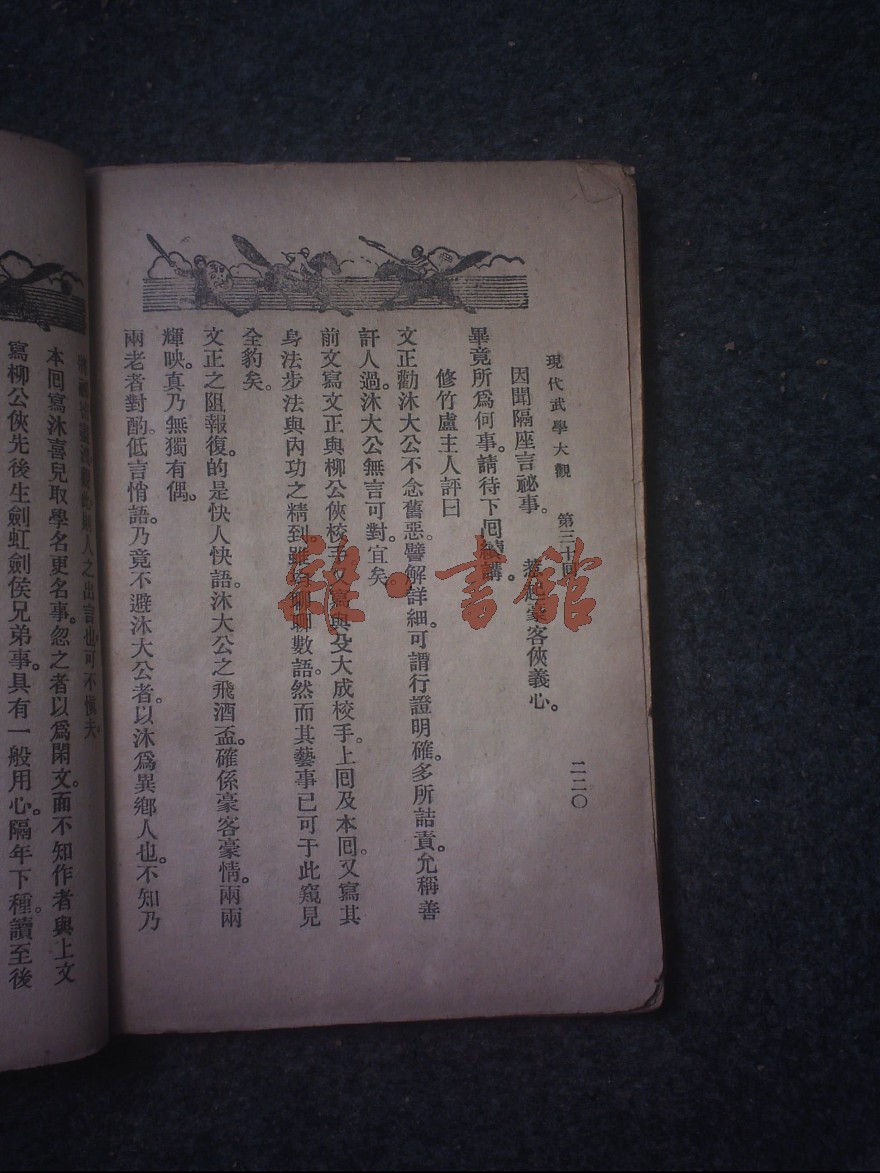 現代武學大觀 第三十回 二二〇
因聞隔座言祕事。 惹起豪客俠義心。
畢竟所爲何事。請待下囘續講。
修竹盧主人評曰
文正勸沐大公不念舊惡。譬解詳細。可謂行證明確。多所詰責。允稱善
訐人過。沐大公無言可對。宜矣。
前文寫文正與柳公俠校手。又寫與殳大成校手。上囘及本囘。又寫其
身法步法與內功之精到。雖只聊聊數語。然而其藝事已可于此窺見
全豹矣。
文正之阻報復。的是快人快語。沐大公之飛酒盃。確係豪客豪情。兩兩
輝映。真乃無獨有偶。
兩老者對酌。低言悄語。乃竟不避沐大公者。以沐爲異鄉人也。不知乃
人之出言也。可不愼夫。
本囘寫沐喜兒取學名更名事。忽之者以爲閑文。而不知作者與上文
寫柳公俠先後生劍虹劍侯兄弟事。具有一般用心。隔年下種。讀至後
雜·書館